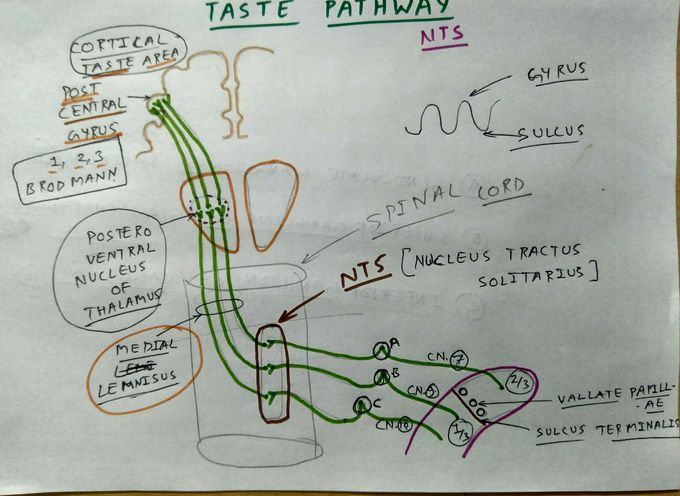 TASTE PATHWAY
NTS
CORTICAL
TASTE AREA
POST
CENTRAL
GYRUS
1, 2, 3
BRODMANN
GYRUS
SULCUS
SPINAL CORD
POSTERO
VENTRAL
NUCLEUS
OF
THALAMUS
NTS [NUCLEUS TRACTUS
SOLITARIUS]
MEDIAL
LEMNISUS
A
CN. 7
2/3
B
CN. 9
1/3
C
CN. 10
VALLATE PAPILL-
AE
SULCUS TERMINALIS